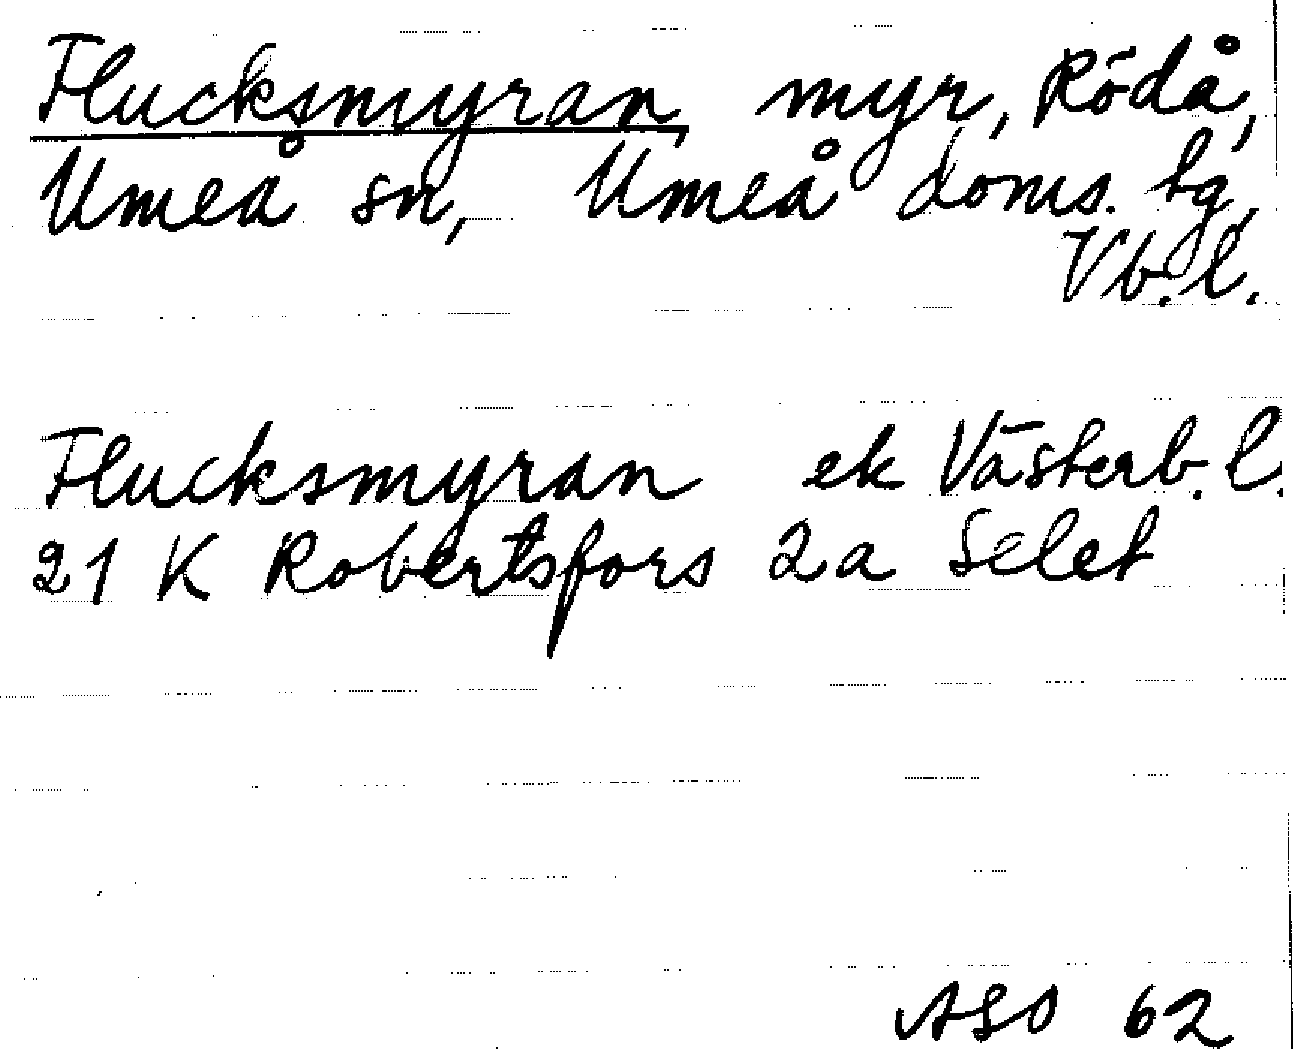 Flucksmyran, myr, Rödå,
Umeå sn, Umeå doms. tg,
Vb.l.
Flucksmyran ek Västerb.l.
21 K Robertsfors 2a Selet
ASO 62